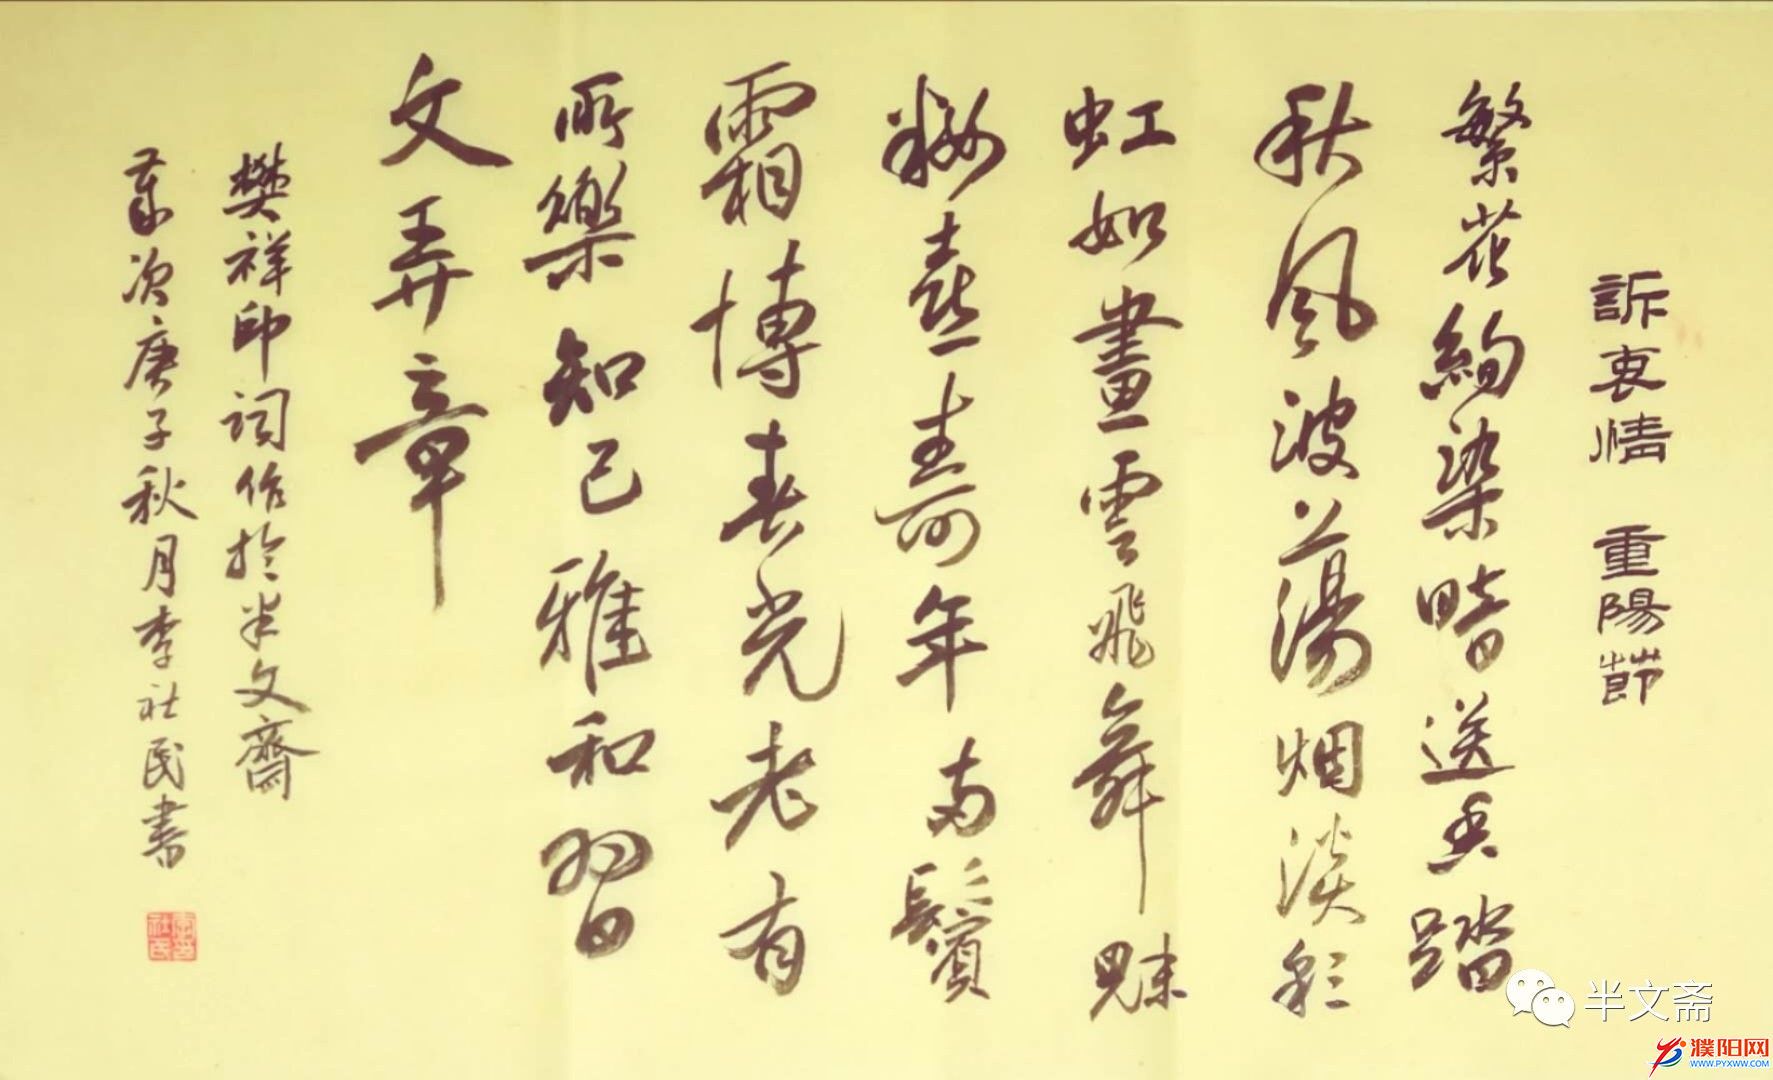 訴衷情 重陽節
繁花絢染暗送香踏
秋風波蕩烟淡彩
虹如畫雲飛舞魅
喜壽年兩鬢
霜博春光老有
所樂知己雅和習
文弄章
樊祥印詞作於半文齋
歲次庚子秋月李社民書
半文斋
濮阳网
WWW.PYXWW.COM